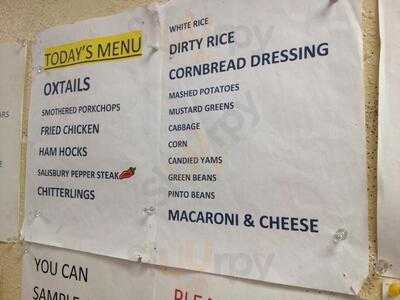 TODAY'S MENU
OXTAILS
SMOTHERED PORKCHOPS
FRIED CHICKEN
HAM HOCKS
SALISBURY PEPPER STEAK
CHITTERLINGS
WHITE RICE
DIRTY RICE
CORNBREAD DRESSING
MASHED POTATOES
MUSTARD GREENS
CABBAGE
CORN
CANDIED YAMS
GREEN BEANS
PINTO BEANS
MACARONI & CHEESE
YOU CAN